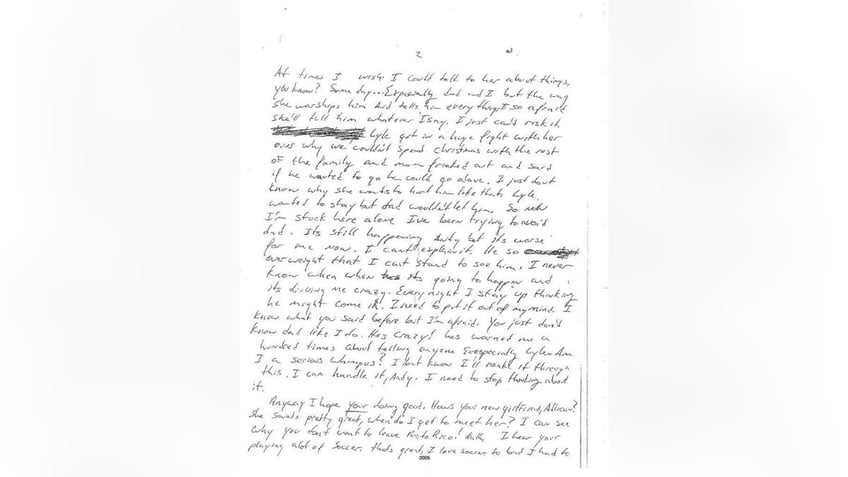 2
At times I wish I could talk to her about things,
you know? Some day... Especially dad and I but the way
she worships him and tells him everything I so afraid
she'll tell him whatever I say. I just can't risk it
Lyle got in a huge fight with her
over why we couldn't spend Christmas with the rest
of the family and mom freaked out and said
if he wanted to go he could go alone. I just don't
know why she wants to hurt him like that. Lyle
wanted to stay but dad wouldn't let him. So now
I'm stuck here alone I've been trying to avoid
dad. Its still happening Andy but its worse
for me now. I can't explain it. He so
overweight that I cant stand to see him. I never
know when when its going to happen and
its driving me crazy. Every night I stay up thinking
he might come in. I need to put it out of my mind. I
know what you said before but I'm afraid. You just don't
know dad like I do. Hes crazy! hes warned me a
hundred times about telling anyone Especially Lyle. Am
I a serious whimpus? I dont know I'll make it through
this. I can handle it, Andy. I need to stop thinking about
it.
Anyway I hope your doing good. Hows your new girlfriend, Allison?
She sounds pretty great, when do I get to meet her? I can see
why you dont want to leave Puerto Rico! I hear your
playing alot of soccer. thats great, I love soccer to but I had to